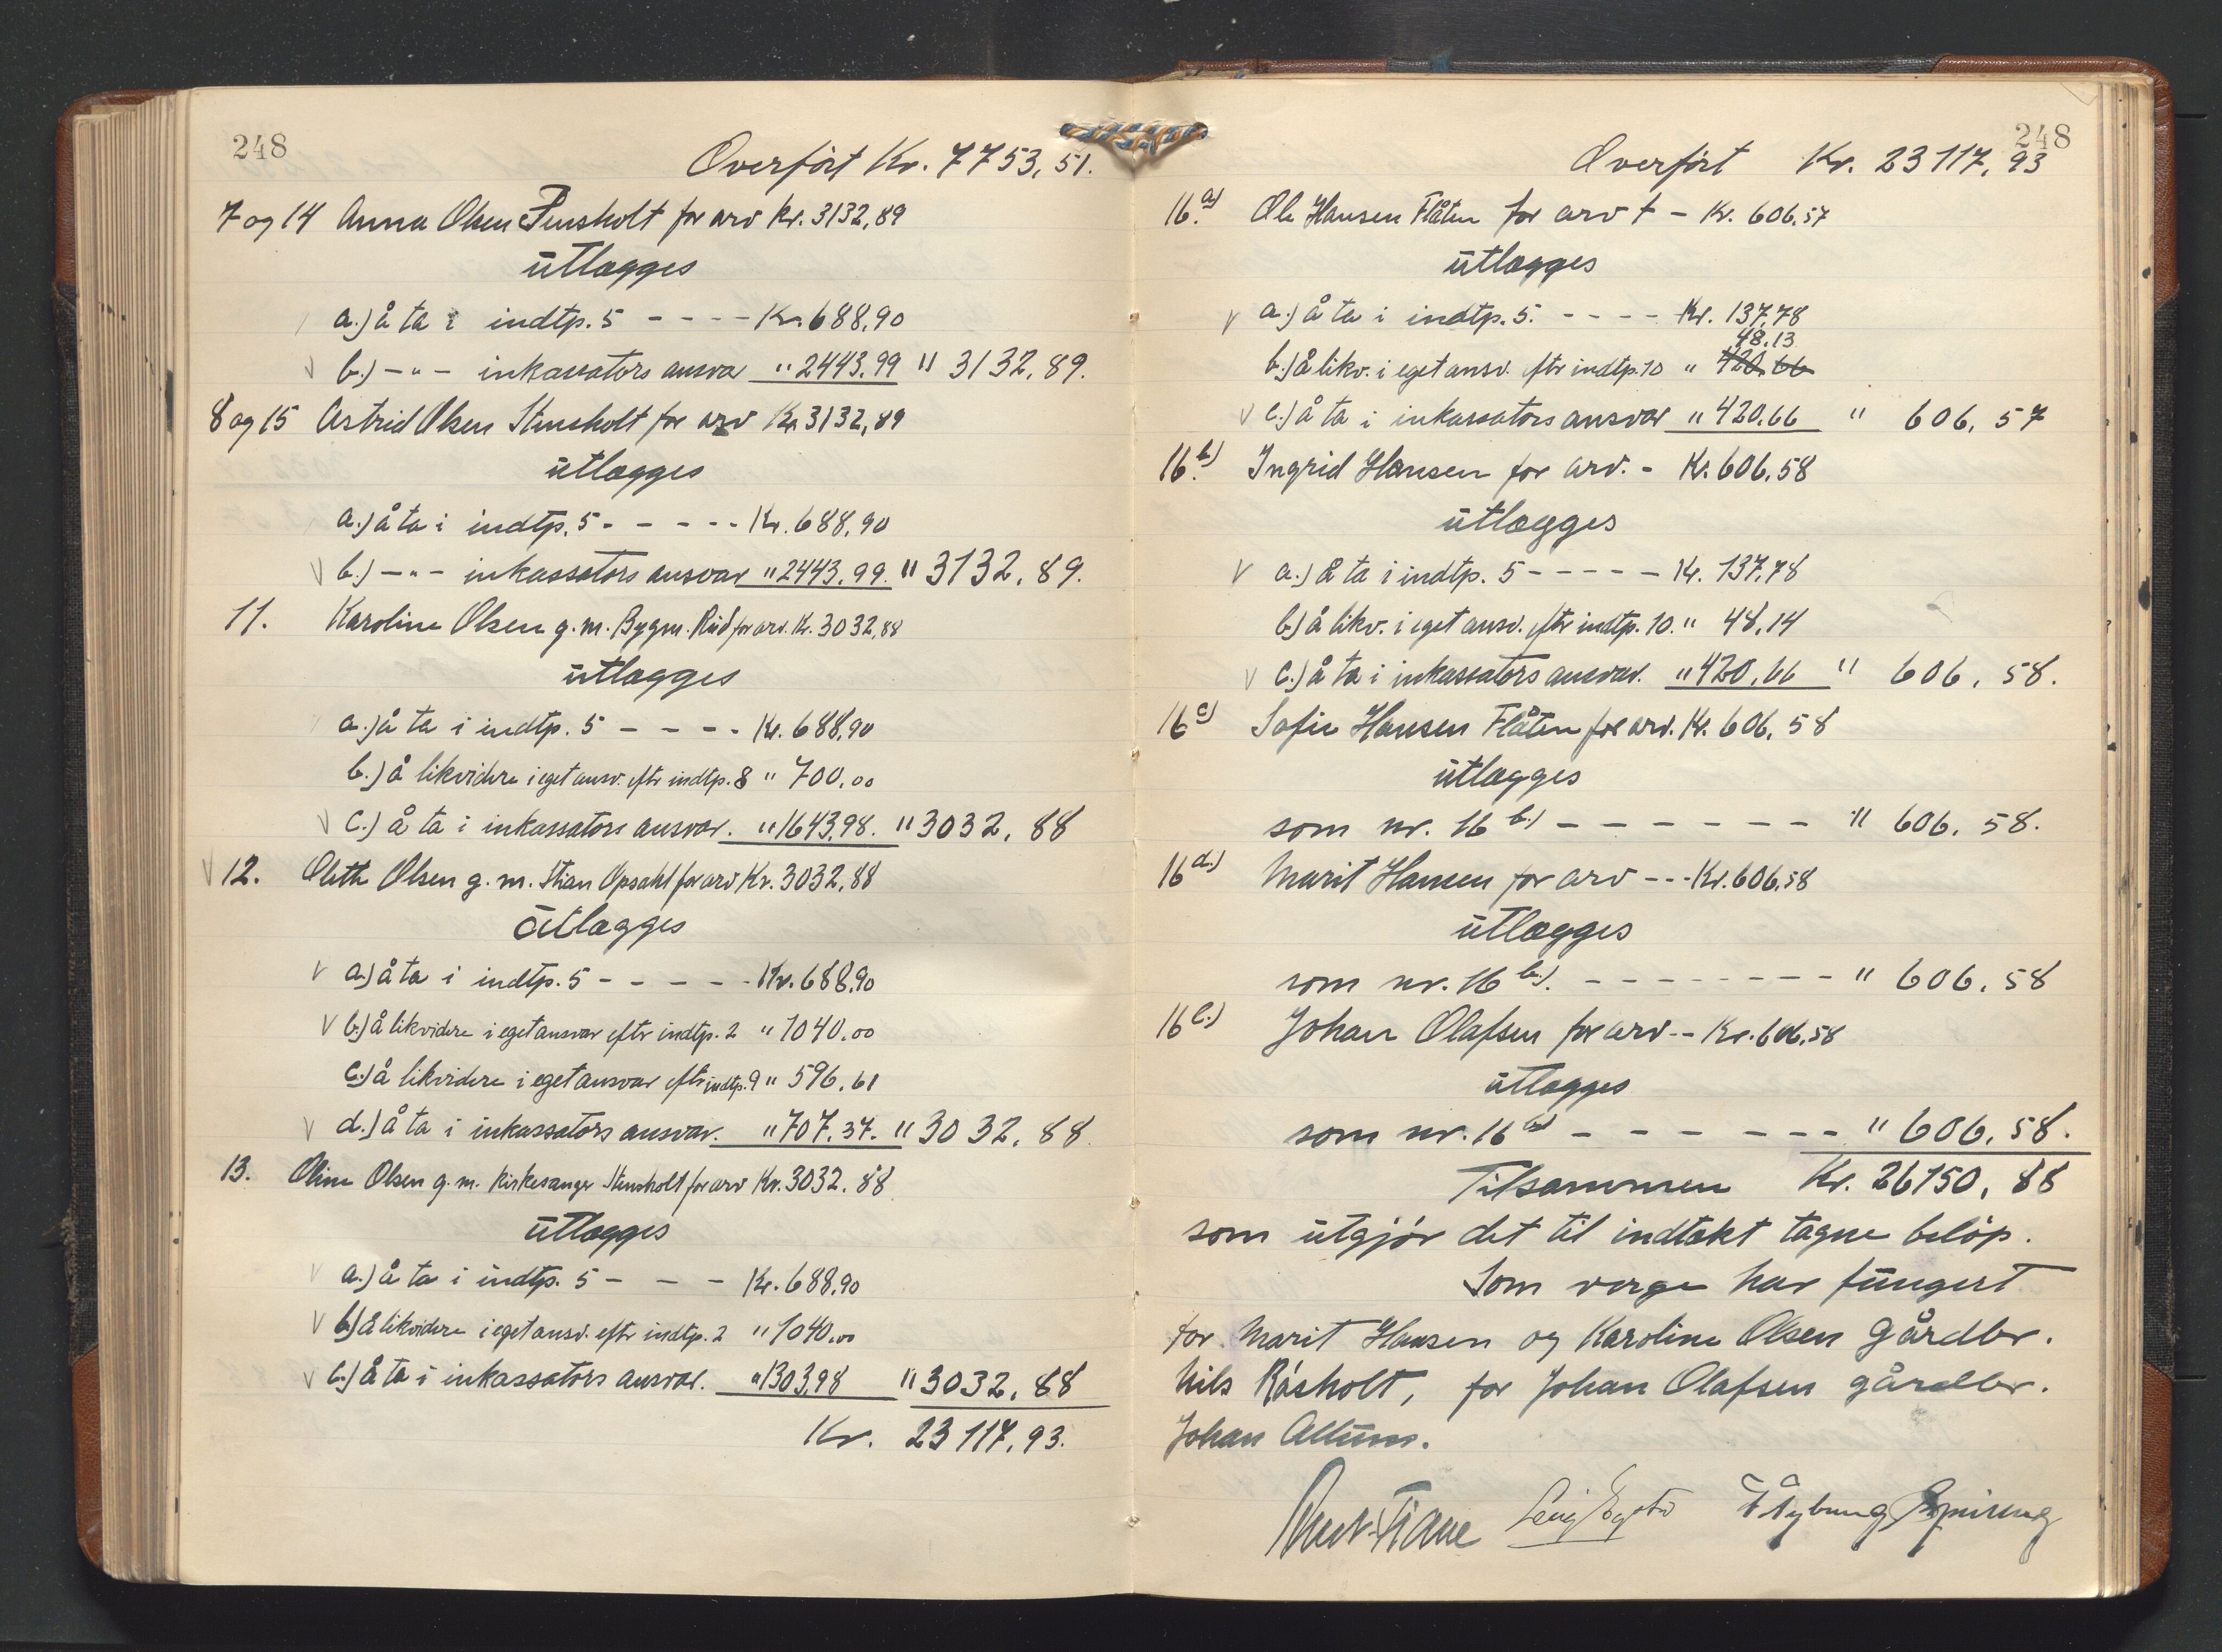 248
Overført Kr. 7753,51.
7 og 14 Anna Olsen Stensholt for arv Kr. 3132,89
utlægges
a.) å ta i indtp. 5 - - - - Kr. 688,90
b.) - " - inkassators ansva " 2443,99 " 3132,89.
8 og 15 Astrid Olsen Stensholt for arv Kr. 3132,89
utlægges
a.) å ta i indtp. 5 - - - - - Kr. 688,90
b.) - " - inkassators ansvar " 2443,99. " 3132,89.
11. Karoline Olsen g.m. Bygm. Rud for arv. Kr. 3032,88
utlægges
a.) å ta i indtp. 5 - - - - Kr. 688,90
b.) å likvidere i eget ansv. eftr indtp. 8 " 700,00
c.) å ta i inkassators ansvar. " 1643,98. " 3032,88
12. Olette Olsen g.m. Stian Opsahl for arv Kr. 3032,88
utlægges
a.) å ta i indtp. 5 - - - - - Kr. 688,90
b.) å likvidere i eget ansvar eftr indtp. 2 " 1040,00
c.) å likvidere i eget ansvar eftr indtp. 9 " 596,61
d.) å ta i inkassators ansvar. " 707,37. " 3032,88.
13. Oline Olsen g.m. kirkesanger Stensholt for arv Kr. 3032,88
utlægges
a.) å ta i indtp. 5 - - - Kr. 688,90
b.) å likvidere i eget ansv. eftr indtp. 2 " 1040,00
c.) å ta i inkassators ansvar. " 1303,98 " 3032,88
Kr. 23117,93.
248
Overført Kr. 23117,93
16.a) Ole Hansen Flåten for arv t - Kr. 606,57
utlægges
a.) å ta i indtp. 5. - - - - Kr. 137,78
48,13
b.) å likv. i eget ansv. eftr indtp. 10 " 420,66
c.) å ta i inkassators ansvar " 420,66 " 606,57
16.b) Ingrid Hansen for arv. - Kr. 606,58
utlægges
a.) å ta i indtp. 5 - - - - - Kr. 137,78
b.) å likv. i eget ansv. eftr indtp. 10. " 48,14
c.) å ta i inkassators ansvar. " 420,66 " 606,58.
16c) Sofie Hansen Flåten for arv. Kr. 606,58
utlægges
som nr. 16 b.) - - - - - - - " 606,58.
16d.) Marit Hansen for arv - - - Kr. 606,58
utlægges
som nr. 16 b.). - - - - - - - - " 606,58
16e.) Johan Olafsen for arv - - Kr. 606,58
utlægges
som nr. 16 b) - - - - - - - " 606,58.
Tilsammen Kr. 26150,88
som utgjør det til indtækt tagne beløp.
Som verge har fungert
for Marit Hansen og Karoline Olsen gårdbr.
Nils Råsholt, for Johan Olafsen gårdbr.
Johan Allum.